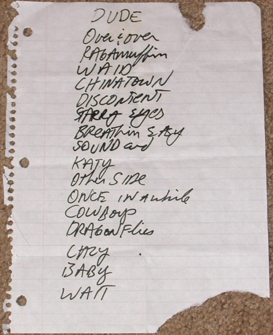 DUDE
Over & over
RAGAMUffin
WAIT
CHINATOWN
DISCONTENT
STARRY Eyes
BREATHIN EASY
SOUND and
KATY
OtheR SIDE
ONCE IN Awhile
COWBOYS
DRAGONflies
LAZY
BABY
WAIT